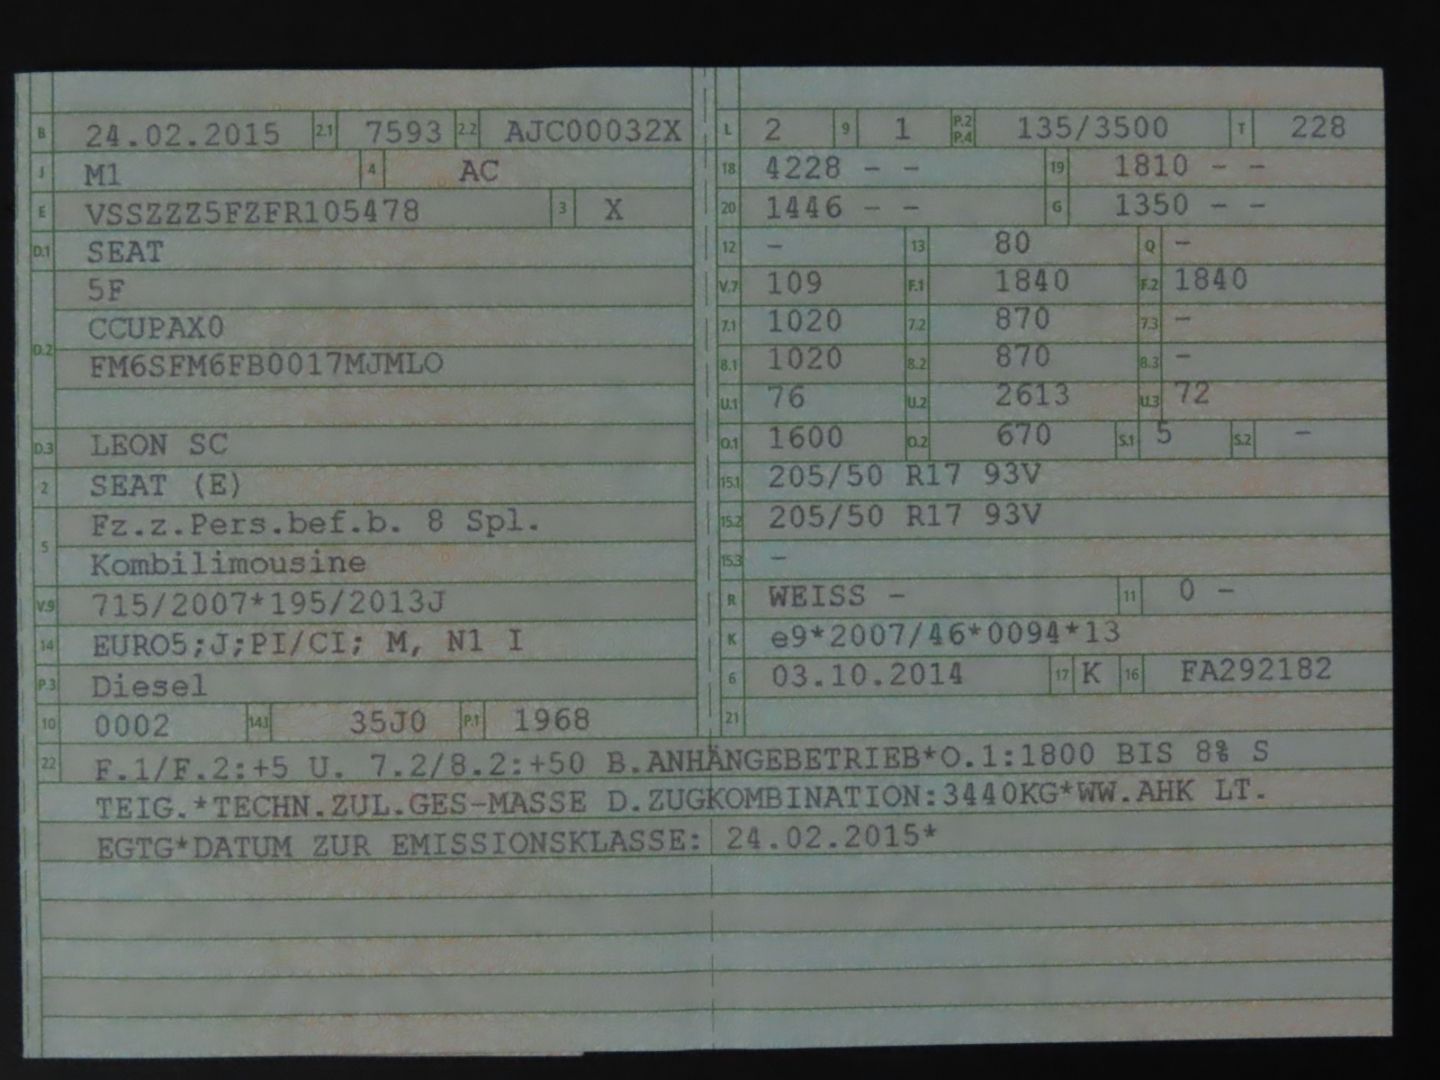 B 24.02.2015 2.1 7593 2.2 AJC00032X
J M1 4 AC
E VSSZZZ5FZFR105478 3 X
D.1 SEAT
5F
D.2 CCUPAX0
FM6SFM6FB0017MJMLO
D.3 LEON SC
2 SEAT (E)
5 Fz.z.Pers.bef.b. 8 Spl.
Kombilimousine
V.9 715/2007*195/2013J
14 EURO5;J;PI/CI; M, N1 I
P.3 Diesel
10 0002 14.1 35J0 P.1 1968
L 2 9 1 P.2 P.4 135/3500 T 228
18 4228 – – 19 1810 – –
20 1446 – – G 1350 – –
12 – 13 80 Q –
V.7 109 F.1 1840 F.2 1840
7.1 1020 7.2 870 7.3 –
8.1 1020 8.2 870 8.3 –
U.1 76 U.2 2613 U.3 72
O.1 1600 O.2 670 S.1 5 S.2 –
15.1 205/50 R17 93V
15.2 205/50 R17 93V
15.3 –
R WEISS – 11 0 –
K e9*2007/46*0094*13
6 03.10.2014 17 K 16 FA292182
21
22 F.1/F.2:+5 U. 7.2/8.2:+50 B.ANHÄNGEBETRIEB*O.1:1800 BIS 8% S
TEIG.*TECHN.ZUL.GES-MASSE D.ZUGKOMBINATION:3440KG*WW.AHK LT.
EGTG*DATUM ZUR EMISSIONSKLASSE: 24.02.2015*